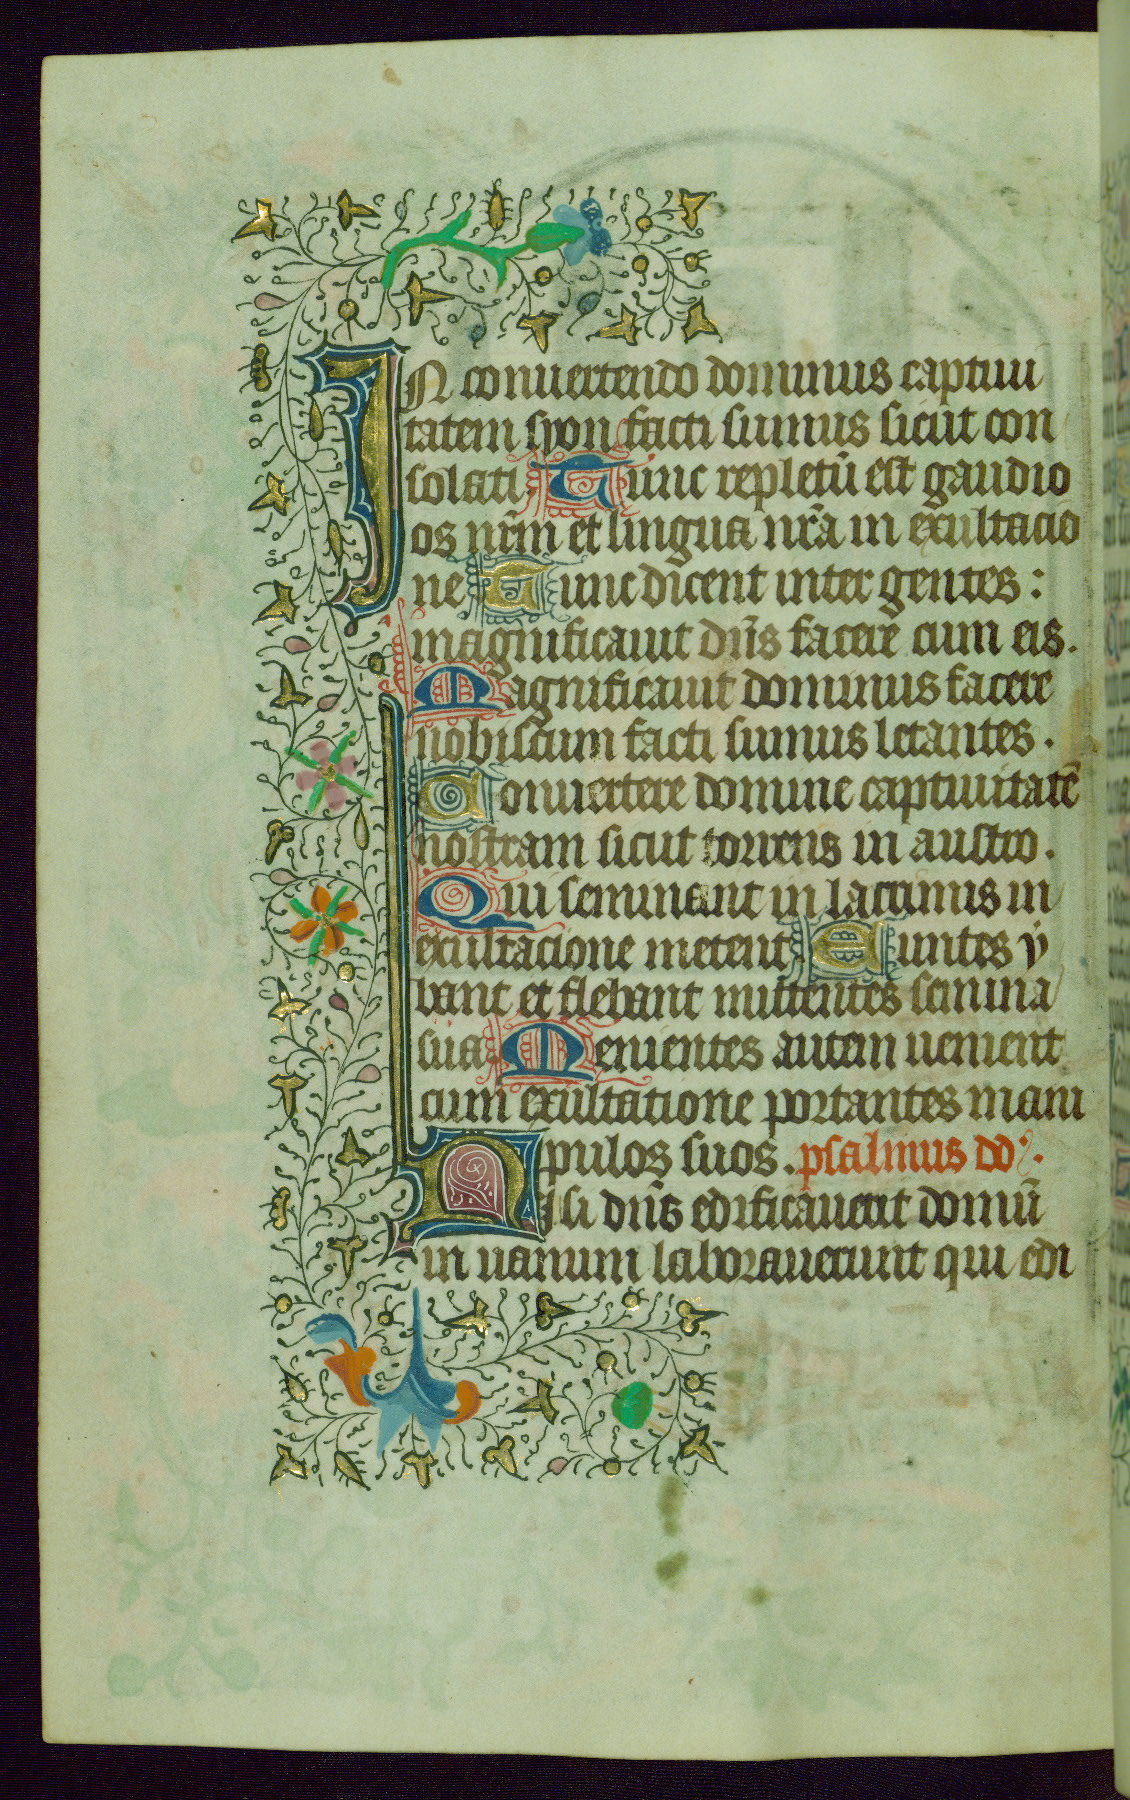 IN conuertendo dominus captiui
tatem syon facti sumus sicut con
solati. Tunc repletū est gaudio
os nr̄m et lingua nr̄a in exultacio
ne Tunc dicent inter gentes :
magnificauit dn̄s facere cum eis.
Magnificauit dominus facere
nobiscum facti sumus letantes .
Conuertere domine captiuitatē
nostram sicut torrens in austro .
Qui seminant in lacrimis in
exultacione metent Euntes y
bant et flebant mittentes semina
sua. Uenientes autem uenient
cum exultatione portantes mani
pulos suos . psalmus do
Nisi dn̄s edificauerit domū
in uanum laborauerunt qui edi